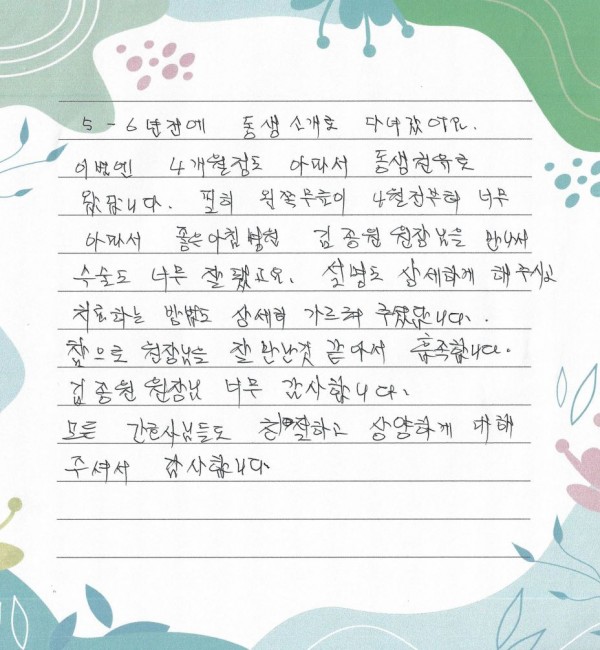 5-6년전에 동생소개로 다녀갔어요.
이번엔 4개월정도 아파서 동생권유로
왔읍니다. 특히 왼쪽무릎이 4월전부터 너무
아파서 좋은아침병원 김종원 원장님을 만나서
수술도 너무 잘됐고요. 설명도 상세하게 해주시고
치료하는 방법도 상세히 가르쳐 주셨읍니다.
참으로 원장님을 잘 만난것 같아서 흡족합니다.
김종원 원장님 너무 감사합니다.
모든 간호사님들도 친절하고 상양하게 대해
주셔서 감사합니다